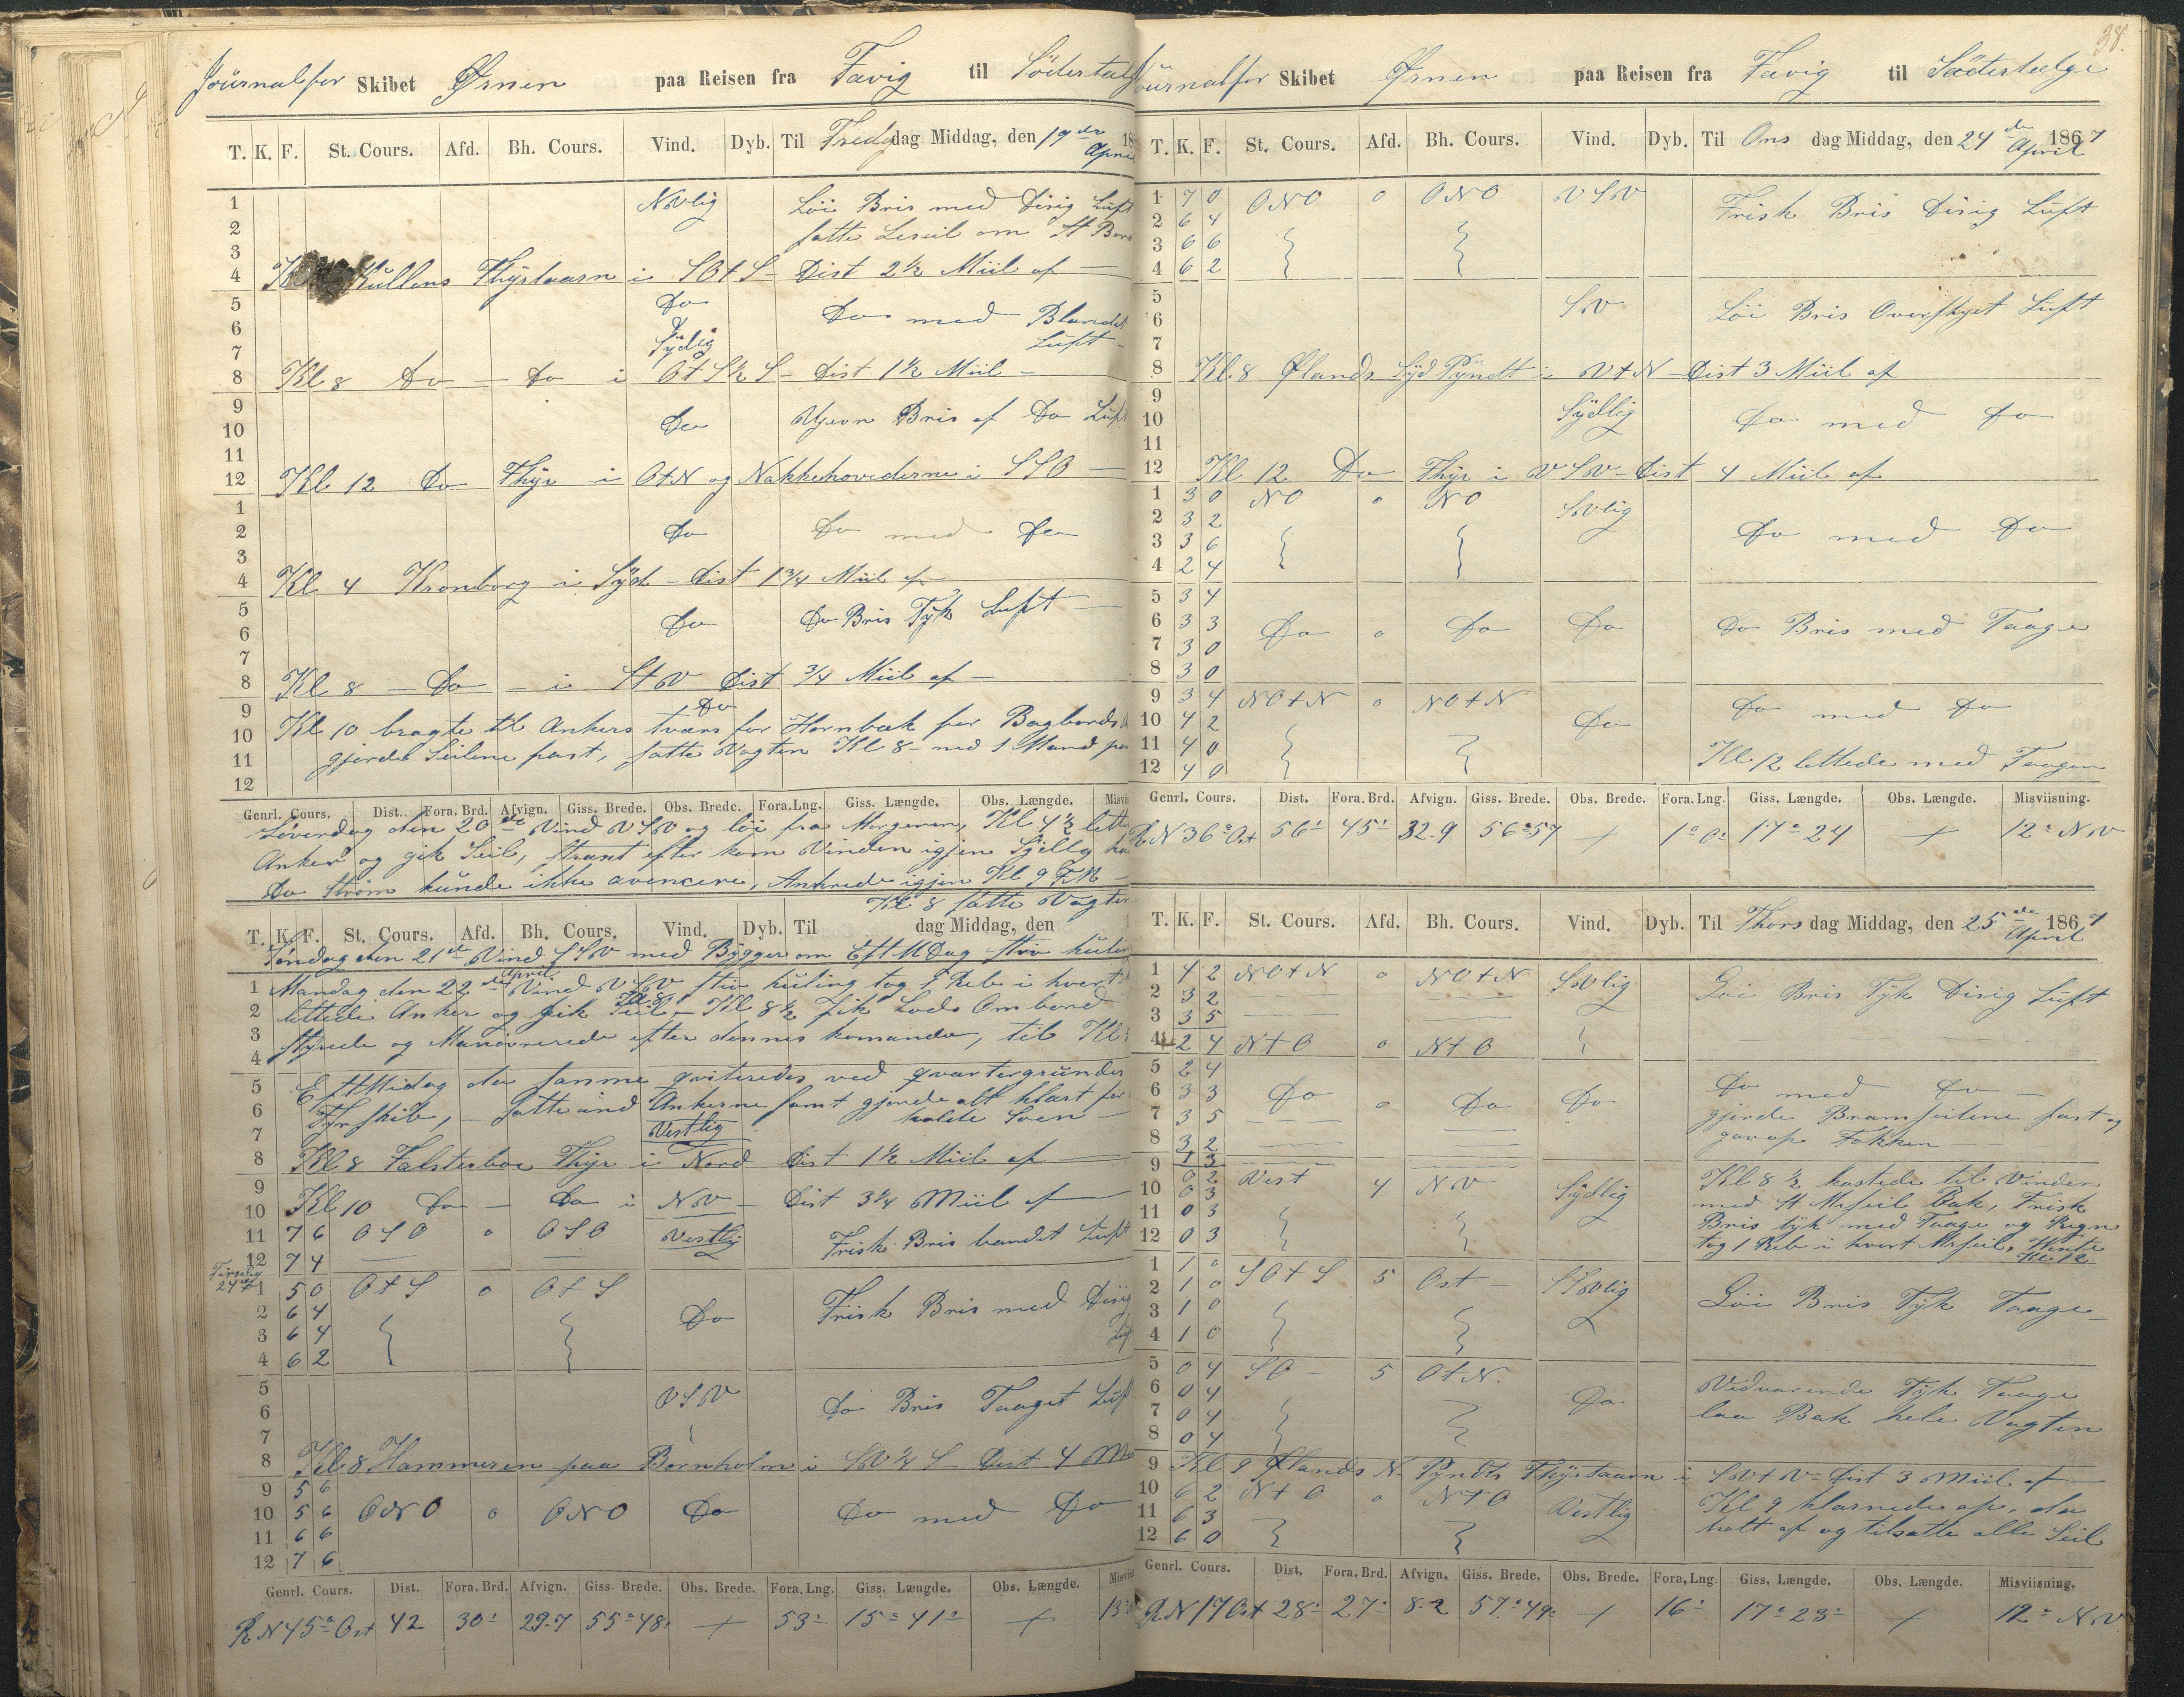 Journal for Skibet Ørnen paa Reisen fra Favig til Södertal
T. K. F. St. Cours. Afd. Bh. Cours. Vind. Dyb. Til Fredg dag Middag, den 19de April 18
1 NVlig Löi Bris med Disig Luft
2 satte Leseil om St Bord
3
4 Kl Kullens Fhyrtaarn i SOtS - Dist 2½ Miil af
5 Do Do med Blandet
6 Sydlig Luft
7
8 Kl 8 Do - Do i OtS½S - Dist 1½ Miil -
9
10 Do Ujevn Bris af Do Luft
11
12 Kl 12 Do Fhyr i OtN og Nakkehovederne i SSO
1
2 Do Do med Do
3
4 Kl 4 Kronborg i Syd - Dist 1¾ Miil af
5 Do Do Bris Tyk Luft
6
7
8 Kl 8 - Do - i StV Dist ¾ Miil af -
9 Do
10 Kl 10 bragte til Ankers tværs for Hornbæk for Bagbords
11 gjorde Seilene fast, satte Vagten Kl 8 - med 1 Mand paa
12
Genrl. Cours. Dist. Fora. Brd. Afvign. Giss. Brede. Obs. Brede. Fora. Lng. Giss. Længde. Obs. Længde. Misvii
Löverdag den 20de Vind VSV og löi fra Morgenen, Kl 4½ lette
Anker og gik Seil, straxt efter kom Vinden igjen Sydlig ha
Do Ström kunde ikke avencere, Ankrede igjen Kl 9 FM
Kl 8 satte Vagten
T. K. F. St. Cours. Afd. Bh. Cours. Vind. Dyb. Til dag Middag, den
Söndag den 21de Vind SSV med Bygger om EftMDag stiv kuling
1 Mandag den 22de April Vind VSV stiv kuling tog 1 Reb i hvert
2 lettede Anker og gik Seil Kl 8 - Kl 8½ fik Lods Ombord
3 styrede og Manövrerede efter dennes komando, til Kl
4
5 EftMidag da samme qviteredes ved qvartergrunden
6 Fyrskib, - Satte ind Ankerne samt gjorde alt klart for
7 Vestlig holde Söen
8 Kl 8 Falsterboe Fhyr i Nord Dist 1½ Miil af
9
10 Kl 10 Do - Do i NV - Dist 3¼ Miil af
11 7 6 OSO 0 OSO Vestlig Frisk Bris bandet Luft
12 7 4
Tirsdag
1 5 0 OtS 0 OtS
2 6 4 Do Frisk Bris med Disig
3 6 4
4 6 2
5 VSV
6 Do Bris Taaget Luft
7
8 Kl 8 Hammeren paa Bornholm i SV¼S - Dist 4 M
9 5 6
10 5 6 ONO 0 ONO Do Do med Do
11 6 6
12 7 6
Genrl. Cours. Dist. Fora. Brd. Afvign. Giss. Brede. Obs. Brede. Fora. Lng. Giss. Længde. Obs. Længde. Misvii
R N 45° Ost 42 30' 29.7 55°48' + 53' 15°41' + 13°
38.
Journal for Skibet Ørnen paa Reisen fra Favig til Södertelge
T. K. F. St. Cours. Afd. Bh. Cours. Vind. Dyb. Til Ons dag Middag, den 24de April 1867
1 7 0 ONO 0 ONO VSV Frisk Bris Disig Luft
2 6 4
3 6 6
4 6 2
5 SV Löi Bris Overskyet Luft
6
7
8 Kl. 8 Ølands Syd Pyndt i VtN - Dist 3 Miil af
9
10 Sydlig Do med Do
11
12 Kl 12 Do Fhyr i VSV - Dist 4 Miil af
1 3 0 NO 0 NO SVlig
2 3 2 Do med Do
3 3 6
4 2 4
5 3 4
6 3 3 Do 0 Do Do Do Bris med Taage
7 3 0
8 3 0
9 3 4 NOtN 0 NOtN
10 4 2 Do Do med Do
11 4 0
12 4 0 Kl 12 lettede med Taagen
Genrl. Cours. Dist. Fora. Brd. Afvign. Giss. Brede. Obs. Brede. Fora. Lng. Giss. Længde. Obs. Længde. Misviisning.
R N 36° Ost 56' 45' 32.9 56°57 + 1°0' 17°24 + 12° NV
T. K. F. St. Cours. Afd. Bh. Cours. Vind. Dyb. Til Thors dag Middag, den 25de April 1867
1 4 2 NOtN 0 NOtN SVlig Löi Bris Tyk Disig Luft
2 3 2
3 3 5
4 2 4 NtO 0 NtO
5 2 4
6 3 3 Do 0 Do Do Do med Do
7 3 5 gjorde Bramseilene fast og
8 3 2 gav op Fokken
9 1 3
0 2 Vest 4 NV Sydlig Kl 8½ kastede til Vinden
10 0 3 med St Mrseil Bak, Frisk
11 0 3 Bris tyk med Taage og Regn
12 0 3 tog 1 Reb i hvert Mrseil,
1 1 0 SOtS 5 Ost SSVlig
2 1 0 Löi Bris Tyk Taage
3 1 0
4 1 0
5 0 4 SO 5 OtN.
6 0 4 Do Vedvarende Tyk Taage
7 0 4 laa Bak hele Vagten
8 0 4
9 Kl 9 Ølands N. Pyndts Fhyrtaarn i SVtV - Dist 3 Miil af
10 6 2 NtO 0 NtO Vestlig Kl 9 klarnede op, da
11 6 3 holt af og tilsatte alle Seil
12 6 0
Genrl. Cours. Dist. Fora. Brd. Afvign. Giss. Brede. Obs. Brede. Fora. Lng. Giss. Længde. Obs. Længde. Misviisning.
R N 17 Ost 28' 27' 8.2 57°49' + 16' 17°23' + 12° NV